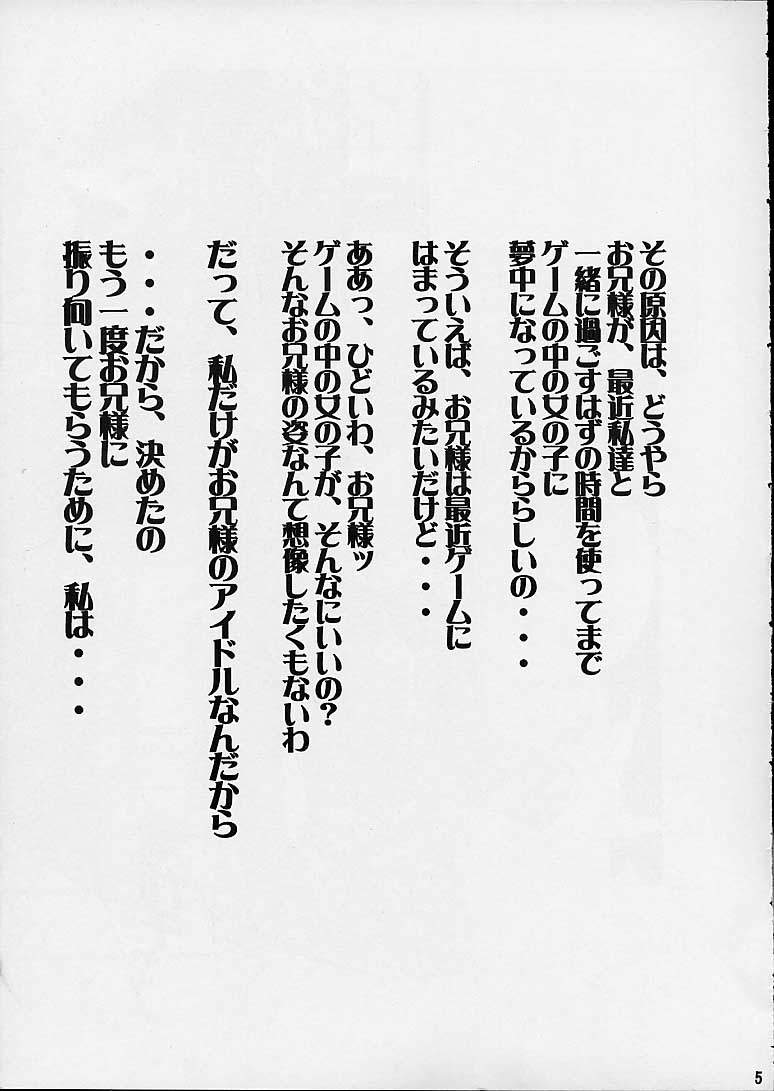 その原因は、どうやら
お兄様が、最近私達と
一緒に過ごすはずの時間を使ってまで
ゲームの中の女の子に
夢中になっているかららしいの・・・
そういえば、お兄様は最近ゲームに
はまっているみたいだけど・・・
ああっ、ひどいわ、お兄様ッ
ゲームの中の女の子が、そんなにいいの？
そんなお兄様の姿なんて想像したくもないわ
だって、私だけがお兄様のアイドルなんだから
・・・だから、決めたの
もう一度お兄様に
振り向いてもらうために、私は・・・
5